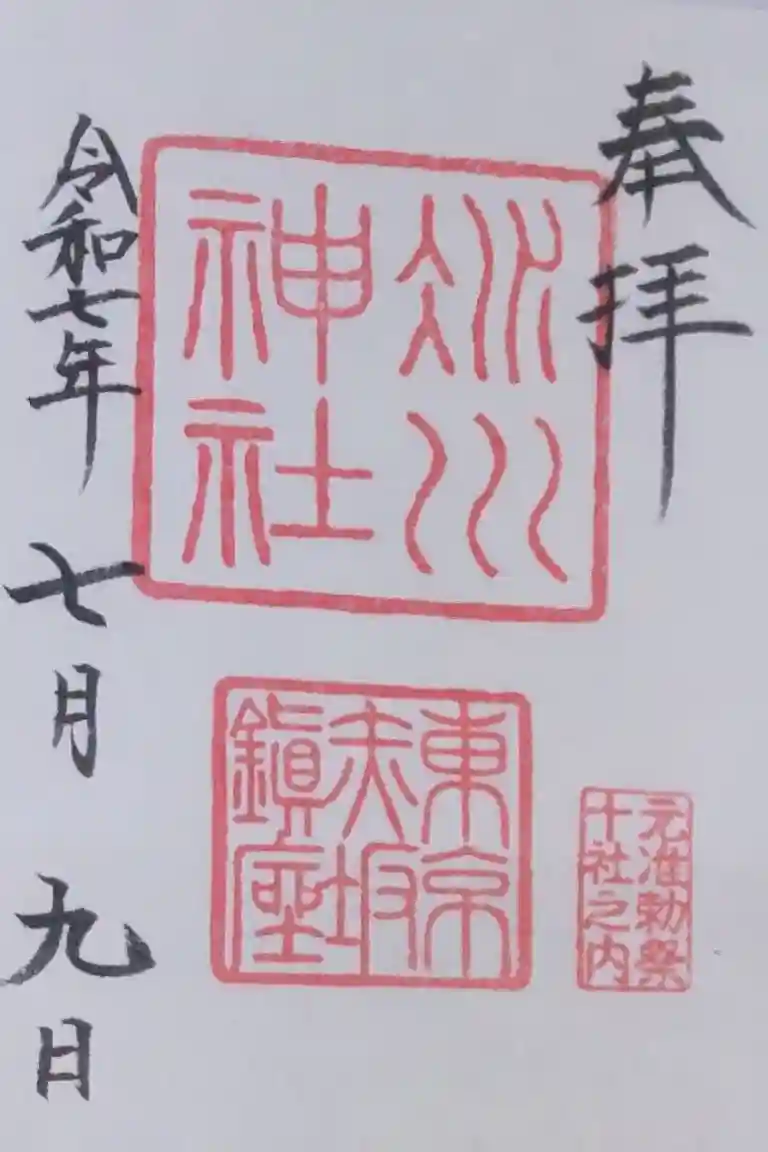 奉拝
冰川
神社
東京
赤坂
鎭座
元准勅祭
十社之内
令和七年 七月 九日